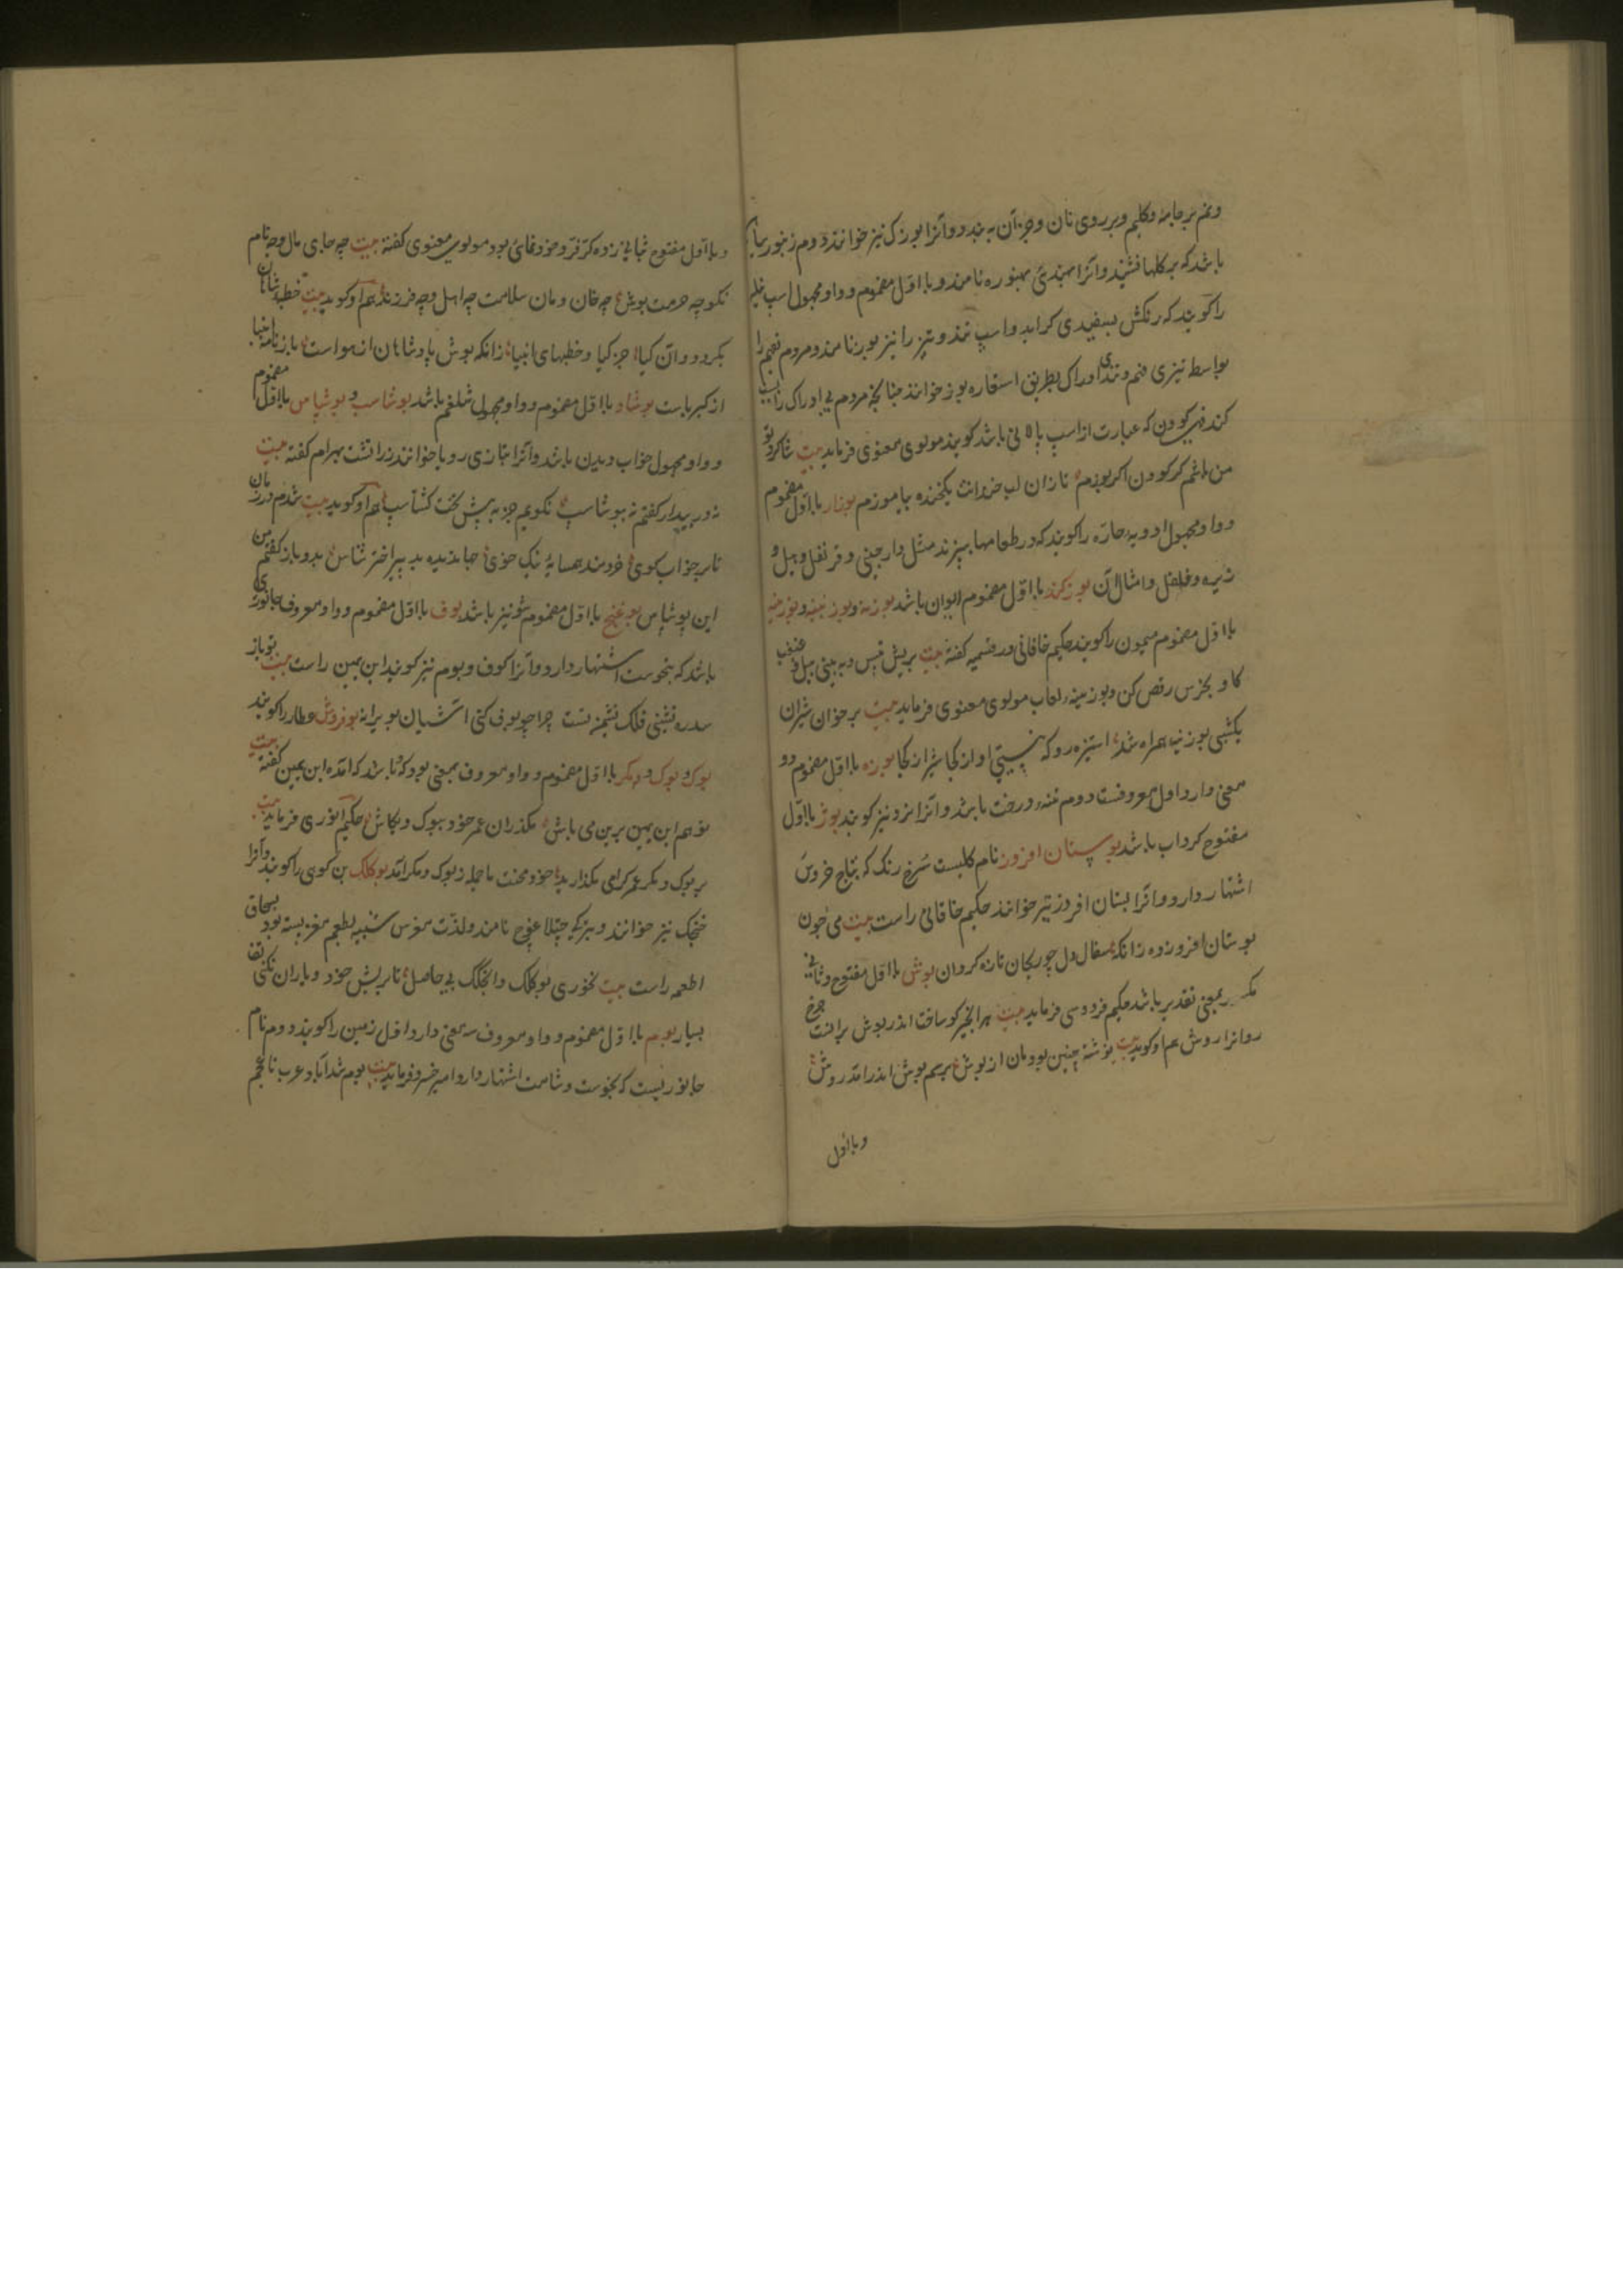 ونم بر جامه و کلیم و بر روی نان و جز آن به بندد و آنرا بوزک نیز خوانند دوم زنبور سیاه
باشد که بر کلها نشیند و آنرا بهندی بهنوره نامند و با اول مضموم و واو مجهول اسپ نیله
را کویند که رنکش بسفیدی کراید و اسپ تند و تیز را نیز بور نامند و مردم فهیم را
بواسطه تیزی فهم و تندی ادراک بطریق استعاره بوز خوانند چنانکه مردم بی ادراک را
کند فهم کودن که عبارت از اسپ پالانی باشد کویند مولوی معنوی فرماید بیت شاکرد تو
من باشم کر کودن اکر بوزم تا زان لب خندانت یکخنده بیاموزم بوزار با اول مضموم
و واو مجهول ادویه حاره را کویند که در طعامها بریزند مثل دارچینی و قرنفل و هیل و
زیره و فلفل و امثال آن بوزکند با اول مضموم ایوان باشد بوزنه و بوزینه و بوزنینه
با اول مضموم میمون را کویند حکیم خاقانی در قسمیه کفته بیت بریش تیس و به بینی پیل و غبغب
کاو بخرس رقص کن و بوزینه لعاب مولوی معنوی فرماید بیت بر خوان شیران
یکشبی بوزینه همراه شد استیزه رو که نیستی او از کجا شیر از کجا بوزه با اول مضموم دو
معنی دارد اول معروفست دوم تنه درخت باشد و آنرا نرد نیز کویند بوژ با اول
مفتوح کرداب باشد بوستان افروز نام کلیست سرخ رنک که بتاج خروس
اشتهار دارد و آنرا بستان افروز نیز خوانند حکیم خاقانی راست بیت می چون
بوستان افروز ده زانکه سفال دل چو ریحان تازه کردان بوش با اول مفتوح و ثانی
مکسور بمعنی تقدیر باشد حکیم فردوسی فرماید بیت هر انچیز کو ساخت اندر بوش بر انست چرخ
روانرا روش هم او کوید بیت نوشته چنین بودمان از بوش برسم بوش اندر آمد روش
و با اول
و با اول مفتوح بثانی زده کر و فر و خود نمائی بود مولوی معنوی کفته بیت چه جای مال و چه نام
نکو چه حرمت بوش چه خان و مان سلامت چه اهل و چه فرزند هم او کوید بیت خطبه شاهان
بکردد و آن کیا جز کیا و خطبهای انبیا زانکه بوش پادشاهان از هواست بارنامه انبیا
از کبریاست بوشاد با اول مضموم و واو مجهول شلغم باشد بوشاسب و بوشپاس با اول مضموم
و واو مجهول خواب دیدن باشد و آنرا بتازی رویا خوانند زراتشت بهرام کفته بیت
نه در بیدار کفتم نه ببوشاسپ نکویم جز به پیش تخت کشتاسپ هم او کوید بیت شدم در زمان
تا بر خواب کوی خردمند همسایهٔ نیک خوی جهاندیده پیر اختر شناس بدو باز کفتم من
این بوشپاس بوغنج با اول مضموم شونیز باشد بوف با اول مضموم و واو معروف جانوری
باشد که بنحوست اشتهار دارد و آنرا کوف و بوم نیز کویند ابن یمین راست بیت تو باز
سدره نشینی فلک نشیمن تست چرا چو بوف کنی آشیان بویرانه بوفروش عطار را کویند
بوک و بوک و مکر با اول مضموم و واو معروف بمعنی بود که و باشد که آمده ابن یمین کفته بیت
تو هم ابن یمین برین می باش مکذران عمر خود ببوک و بکاش حکیم انوری فرماید بیت
بر بوک و مکر عمر کرامی مکذارید خود محنت ما جمله ز بوک و مکر آمد بوکلک بن کوهی را کویند و آنرا
خنجک نیز خوانند و بترکی چتلا غوچ نامند و لذت مغزش شبیه بطعم مغز پسته بود بسحاق
اطعمه راست بیت نخوری بوکلک و انجلک بی حاصل تا بریش خود و یاران نکنی تف
بسیار بوم با اول مضموم و واو معروف سه معنی دارد اول زمین را کویند دوم نام
جانوریست که بنحوست و شامت اشتهار دارد امیر خسرو فرماید بیت بوم شد آباد عرب تا عجم